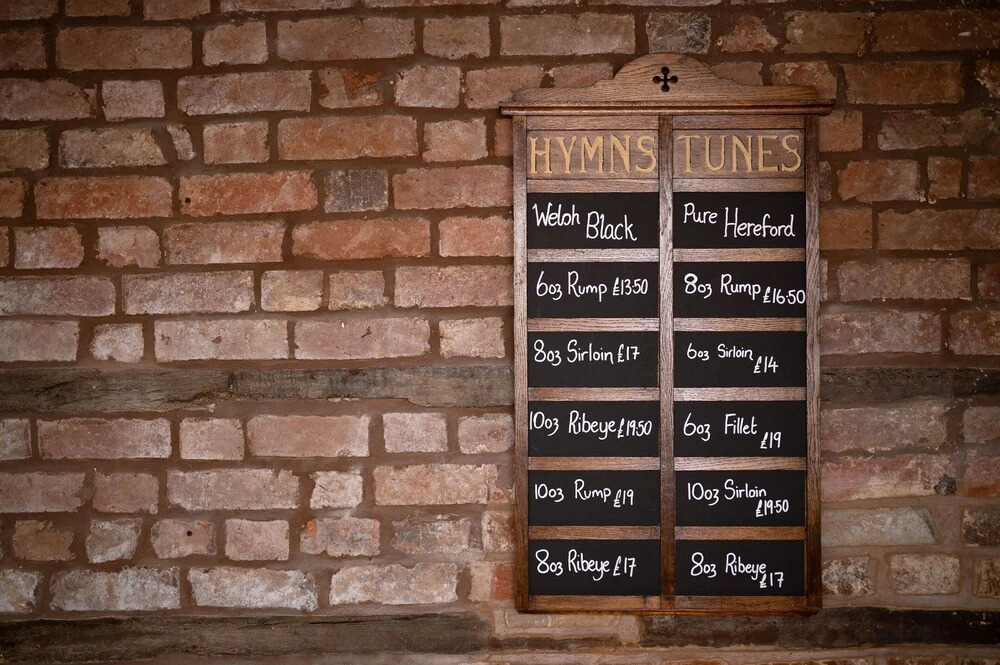 HYMNS TUNES
Welsh Black
Pure Hereford
6oz Rump £13.50
8oz Rump £16.50
8oz Sirloin £17
6oz Sirloin £14
10oz Ribeye £19.50
6oz Fillet £19
10oz Rump £19
10oz Sirloin £19.50
8oz Ribeye £17
8oz Ribeye £17